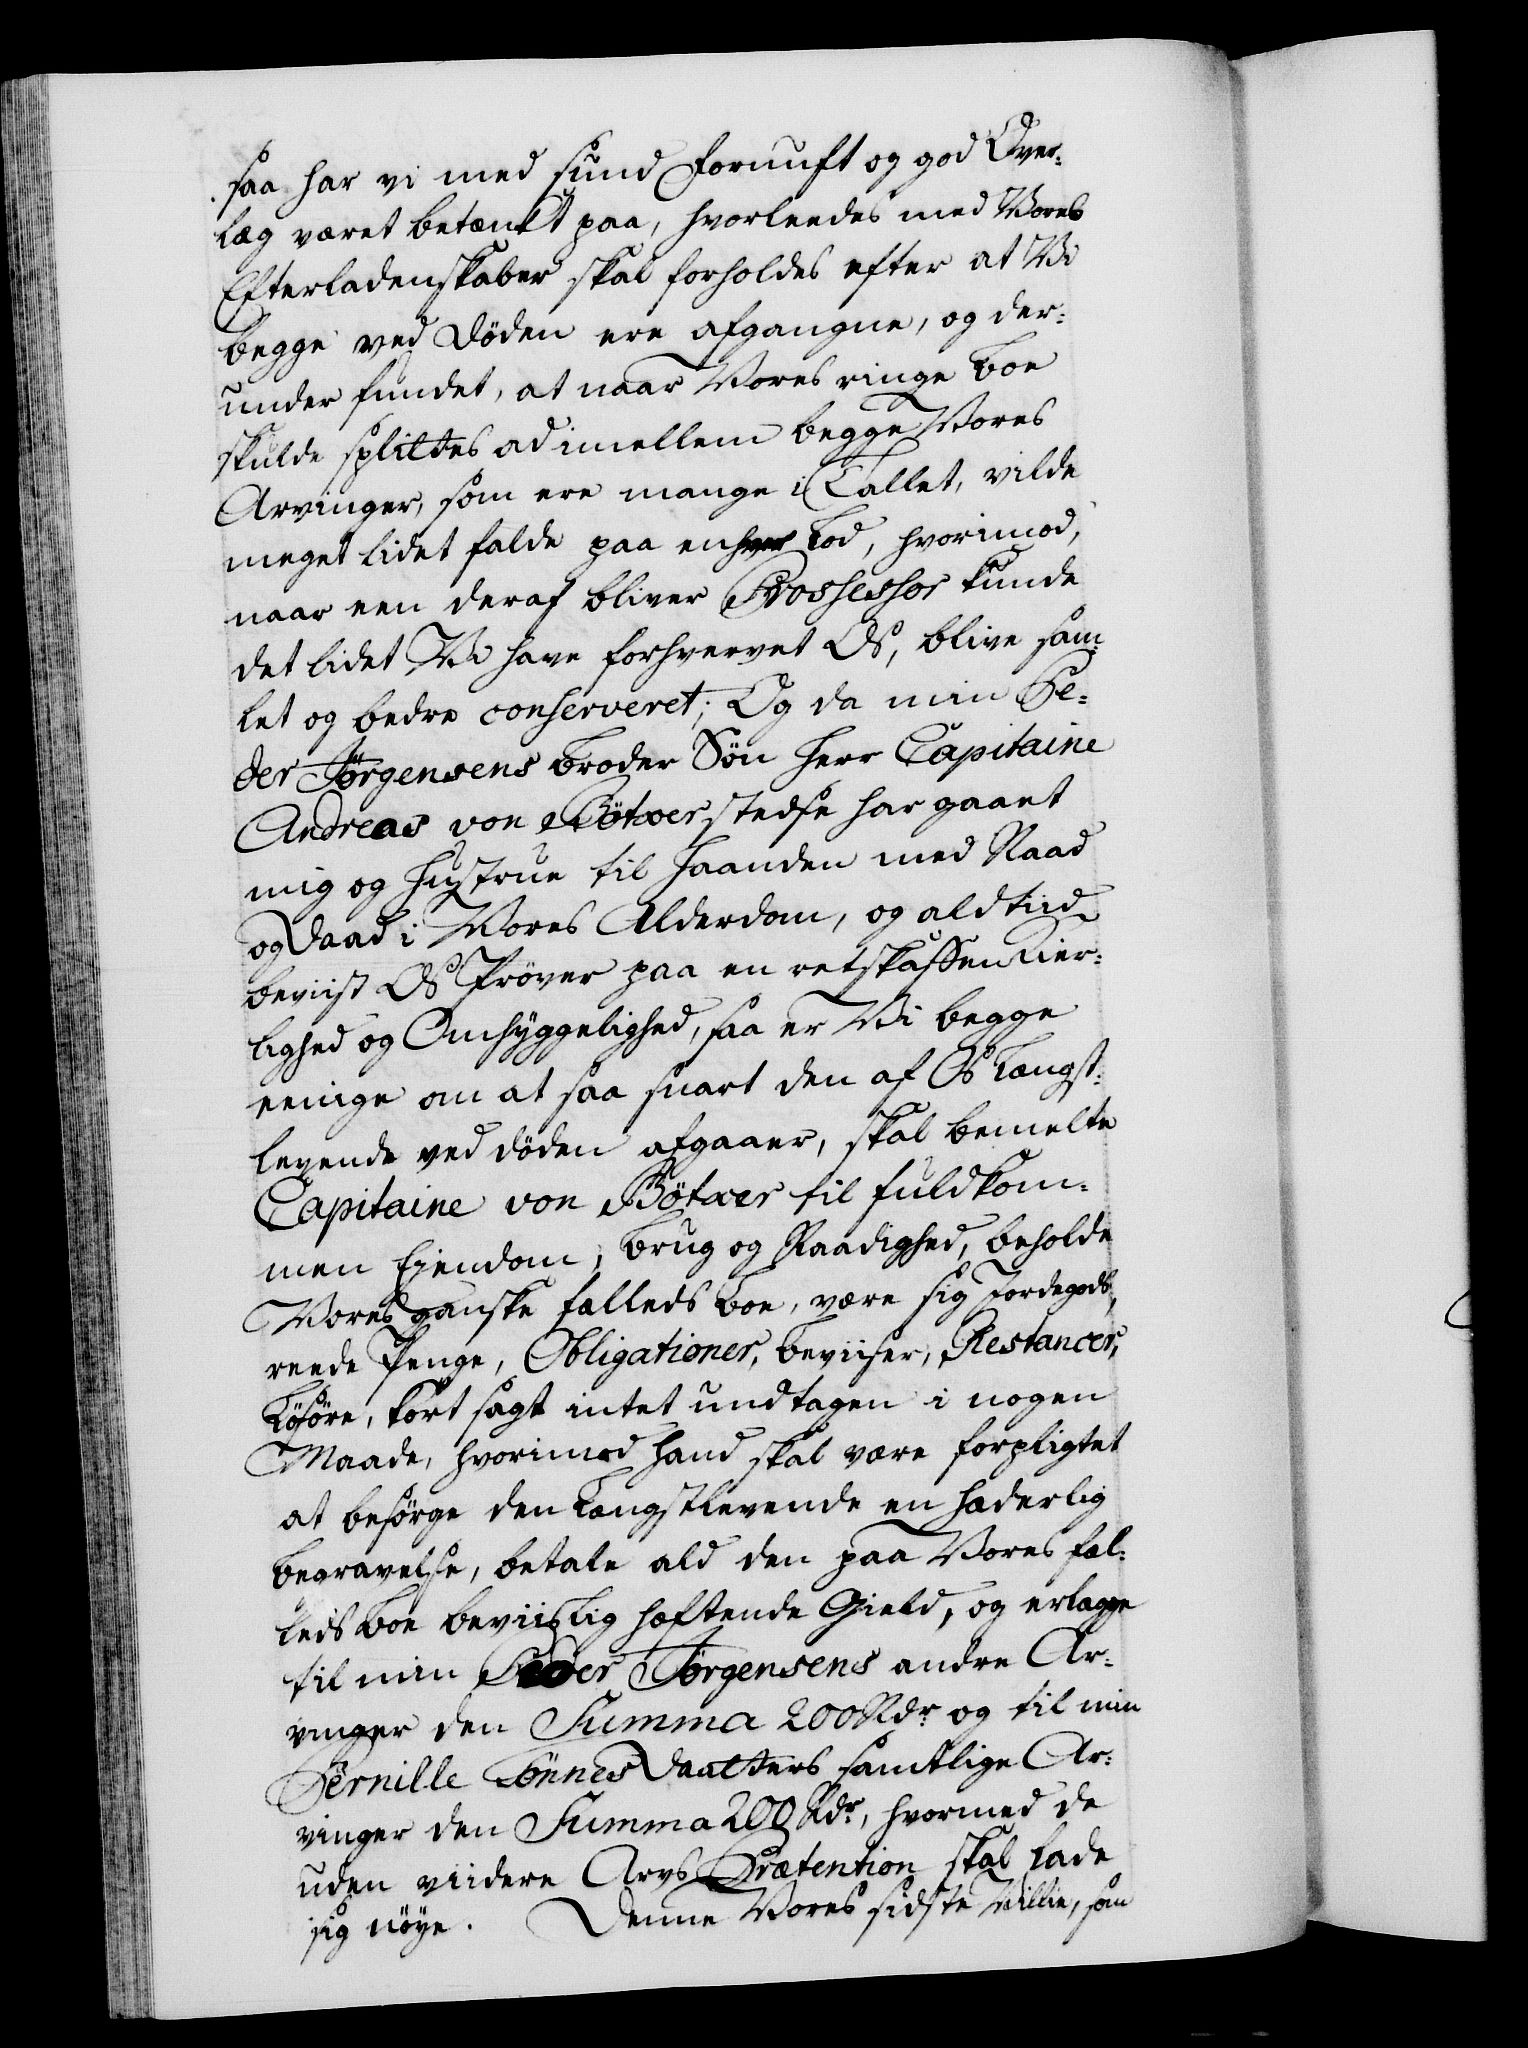 saa har vi med sund Fornuft og god Over-
læg været betænkt paa, hvorleedes med Vores
Efterladenskaber skal forholdes efter at Vi
begge ved Døden ere afgangne, og der-
under fundet, at naar Vores ringe Boe
skulde splittes ad imellem begge Vores
Arvinger, som ere mange i Tallet, vilde
meget lidet falde paa enhver Lod, hvorimod,
naar een deraf bliver Possessor kunde
det lidet Vi have forhvervet Os, blive sam-
let og bedre conserveret; Og da min Pe-
der Jørgensens Broder Søn Herr Capitaine
Andreas von Bötxer stedse har gaaet
mig og Hustrue til Haanden med Raad
og Daad i Vores Alderdom, og aldtiid
beviist Os Prøver paa en retskaffen Kier-
lighed og Omhyggelighed, saa er Vi begge
eenige om at saa snart den af Os Længst-
levende ved døden afgaaer, skal bemelte
Capitaine von Bötxer til fuldkom-
men Ejendom, Brug og Raadighed, beholde
Vores ganske fælleds Boe, være sig Jordegods,
reede Penge, Obligationer, Beviiser, Restancer,
Løsøre, kort sagt intet undtagen i nogen
Maade, hvorimod hand skal være forpligtet
at besørge den Længstlevende en hæderlig
Begravelse, betale ald den paa Vores fæl-
leds Boe beviislig hæftende Gield, og erlægge
til min Peder Jørgensens andre Ar-
vinger den Summa 200 Rdr og til min
Pernille Tönnes Daatters samtlige Ar-
vinger den Summa 200 Rdr, hvormed de
uden viidere Arvs Prætention skal lade
sig nøye. Denne Vores sidste Villie, som